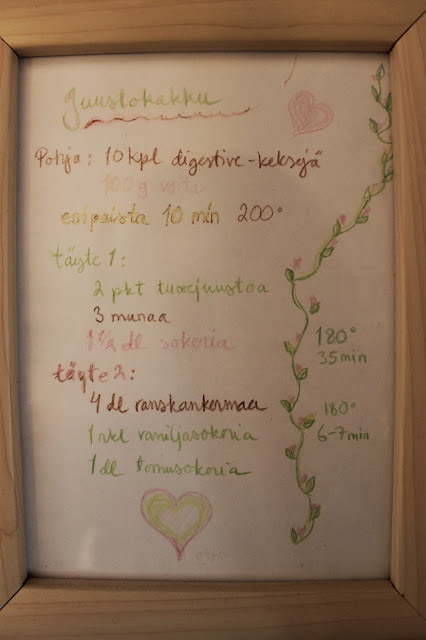 Juustokakku
Pohja: 10 kpl digestive-keksejä
100 g voita
esipaista 10 min 200°
täyte 1:
2 pkt tuorejuustoa
3 munaa
1 1/2 dl sokeria
180°
35 min
täyte 2:
4 dl ranskankermaa
1 rkl vaniljasokeria
1 dl tomusokeria
180°
6-7 min